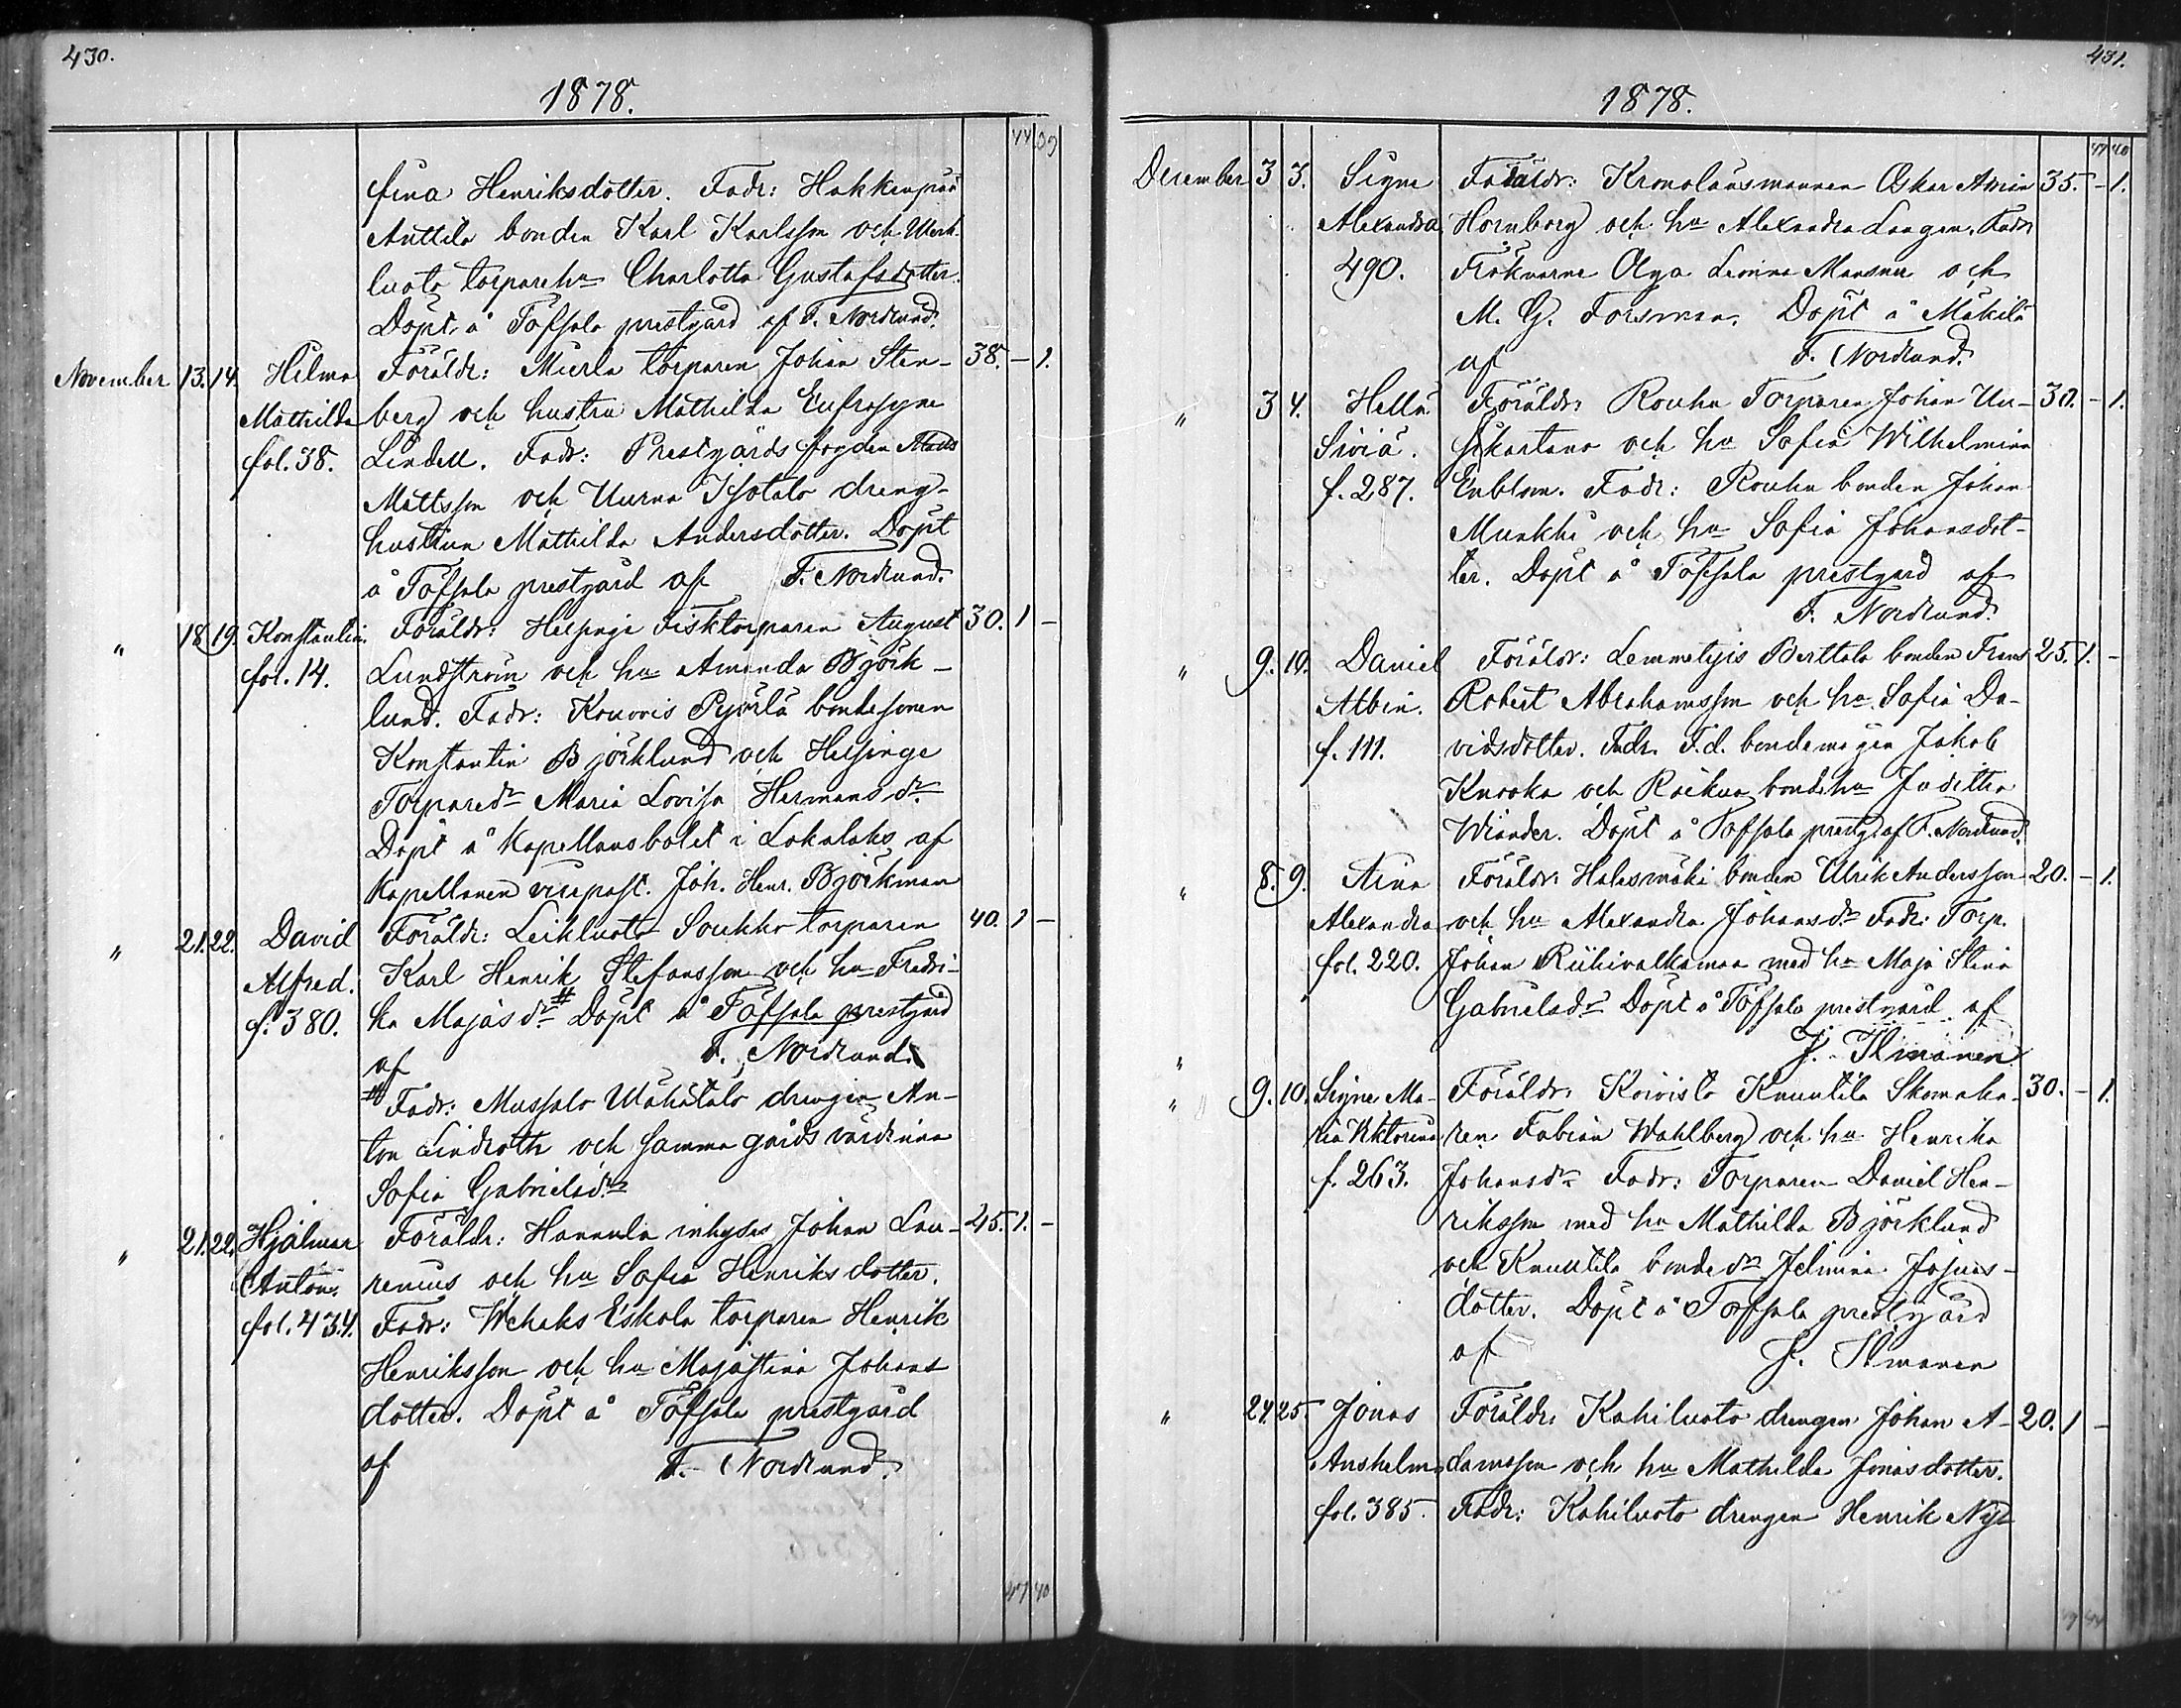 430.
1878.
44 39
fina Henriksdotter. Fadr: Hakkenpää
Anttila bonden Karl Karlsson och
luoto torpareh:n Charlotta Gustafsdotter.
Döpt å Töfsala prestgård af F. Nordlund.
November 13. 14. Hilma Föräldr: Mierla torparen Johan Sten- 38. — 1.
Mathilda berg och hustru Mathilda Eufrosyne
fol. 38. Lindell. Fadr: Prestgårds fogden
Mattsson och Uurna Isotalo dreng-
hustrun Mathilda Andersdotter. Döpt
å Töfsala prestgård af F. Nordlund.
" 18. 19. Konstantin. Föräldr: Helsinge Fisktorparen August 30. 1 —
fol. 14. Lundström och hu Amanda Björk-
lund. Fadr: Kouvois Pyörlä bondesonen
Konstantin Björklund och Helsinge
Torpared:r Maria Lovisa Hermansd:r
Döpt å Kapellansbolet i Lokalaks af
Kapellanen vicepast. Joh. Henr. Björkman
" 21. 22. David Föräldr: Leikluoto Soukko torparen 40. 1 —
Alfred. Karl Henrik Stefansson och hu Fredri-
f. 380. ka Majasd:r # Döpt å Töfsala prestgård
af F. Nordlund.
# Fadr: Mussalo Wähätalo drengen An-
ton Lindroth och samma gårds värdinna
Sofia Gabrielsd:r
" 21. 22. Hjalmar Föräldr: Hannula inhyses Johan Lau- 45. 1. —
Anton. renius och hu Sofia Henriksdotter.
fol. 434. Fadr: Wehaks Eskola torparen Henrik
Henriksson och hu Majastina Johans
dotter. Döpt å Töfsala prestgård
af F. Nordlund.
47 40
431.
1878.
47 40
December 3 3. Signe Föräldr: Kronolänsmannen Oskar Armin 35. — 1.
Alexandra Hornborg och hu Alexandra Langen. Fadr
490. Fröknarne Olga Leonna Mansner och
M. G. Forsman. Döpt å Mäkilä
af F. Nordlund.
" 3 4. Hellä Föräldr: Rouhu Torparen Johan Uu- 30. — 1.
Siviä. sikartano och hu Sofia Wilhelmina
f. 287. Enblom. Fadr: Rouhu bonden Johan
Munkki och hu Sofia Johansdot-
ter. Döpt å Töfsala prestgård af
F. Nordlund.
" 9. 10. Daniel Föräldr: Lemmetyis Perttala bonden Frans 25. 1. —
Albin. Robert Abrahamsson och hu Sofia Da-
f. 111. vidsdotter. Fadr. F.d. bondemågen Jakob
Knooka och Raikua bondehu Juditha
Wiander. Döpt å Töfsala prestg. af F. Nordlund.
" 8. 9. Aina Föräldr: Halasmäki bonden Ulrik Andersson 20. — 1.
Alexandra och hu Alexandra Johansd:r Fadr: Torp.
fol. 220. Johan Riihivalkamaa med hu Maja Stina
Gabrielsd:r Döpt å Töfsala prestgård af
" J. Ilmanen
" 9. 10. Signe Ma- Föräldr: Koivisto Knuutila Skomaka- 30. — 1.
ria Viktorina ren Fabian Wahlberg och hu Henrika
f. 263. Johansd:r Fadr: Torparen Daniel Hen-
riksson med hu Mathilda Björklund
och Knuutila bonded:r Jelmina Josuas-
dotter. Döpt å Töfsala prestgård
af J. Ilmanen
" 24. 25. Jonas Föräldr: Kahiluoto drengen Johan A- 20. 1 —
Anshelm damsson och hu Mathilda Jonasdotter.
fol. 385. Fadr: Kahiluoto drengen Henrik Ny-